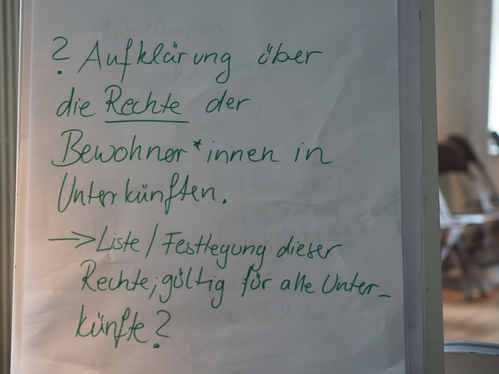 ? Aufklärung über
die Rechte der
Bewohner*innen in
Unterkünften.
→ Liste / Festlegung dieser
Rechte; gültig für alle Unter-
künfte?